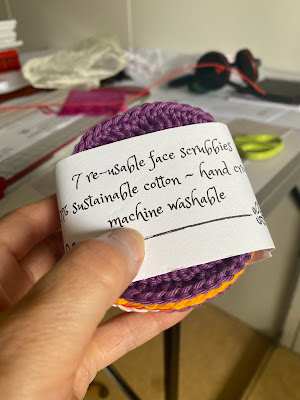 7 re-usable face scrubbies
% sustainable cotton ~ hand cro
machine washable